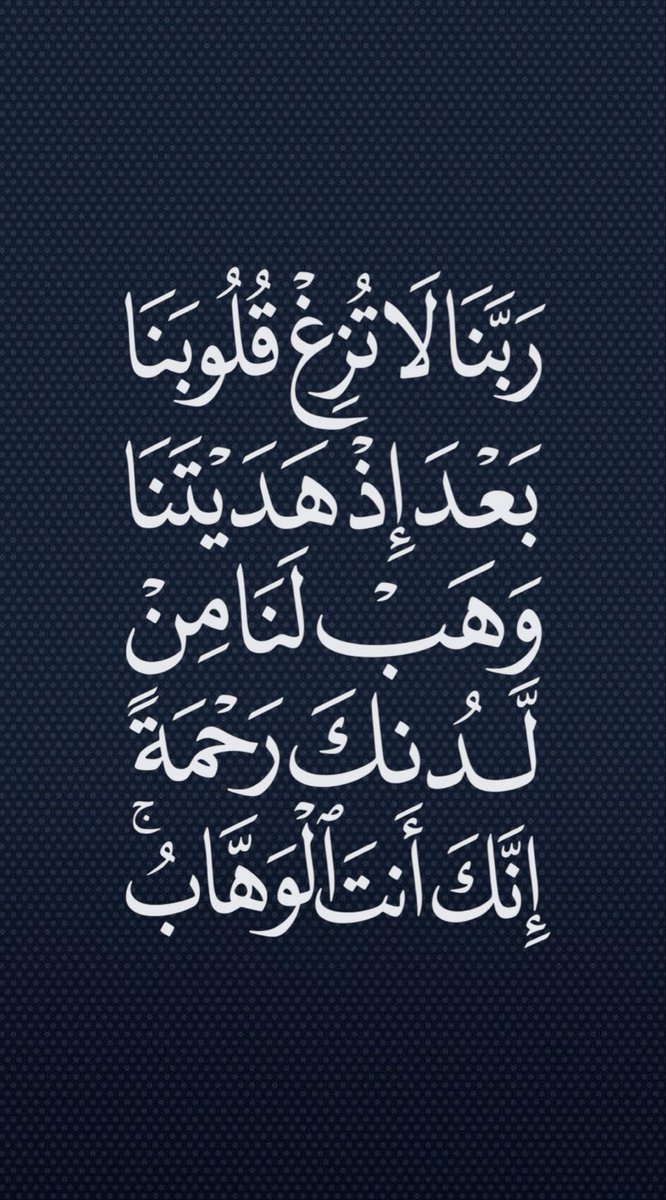 رَبَّنَا لَا تُزِغْ قُلُوبَنَا
بَعْدَ إِذْ هَدَيْتَنَا
وَهَبْ لَنَا مِنْ
لَّدُنكَ رَحْمَةً
إِنَّكَ أَنتَ ٱلْوَهَّابُ ۚ